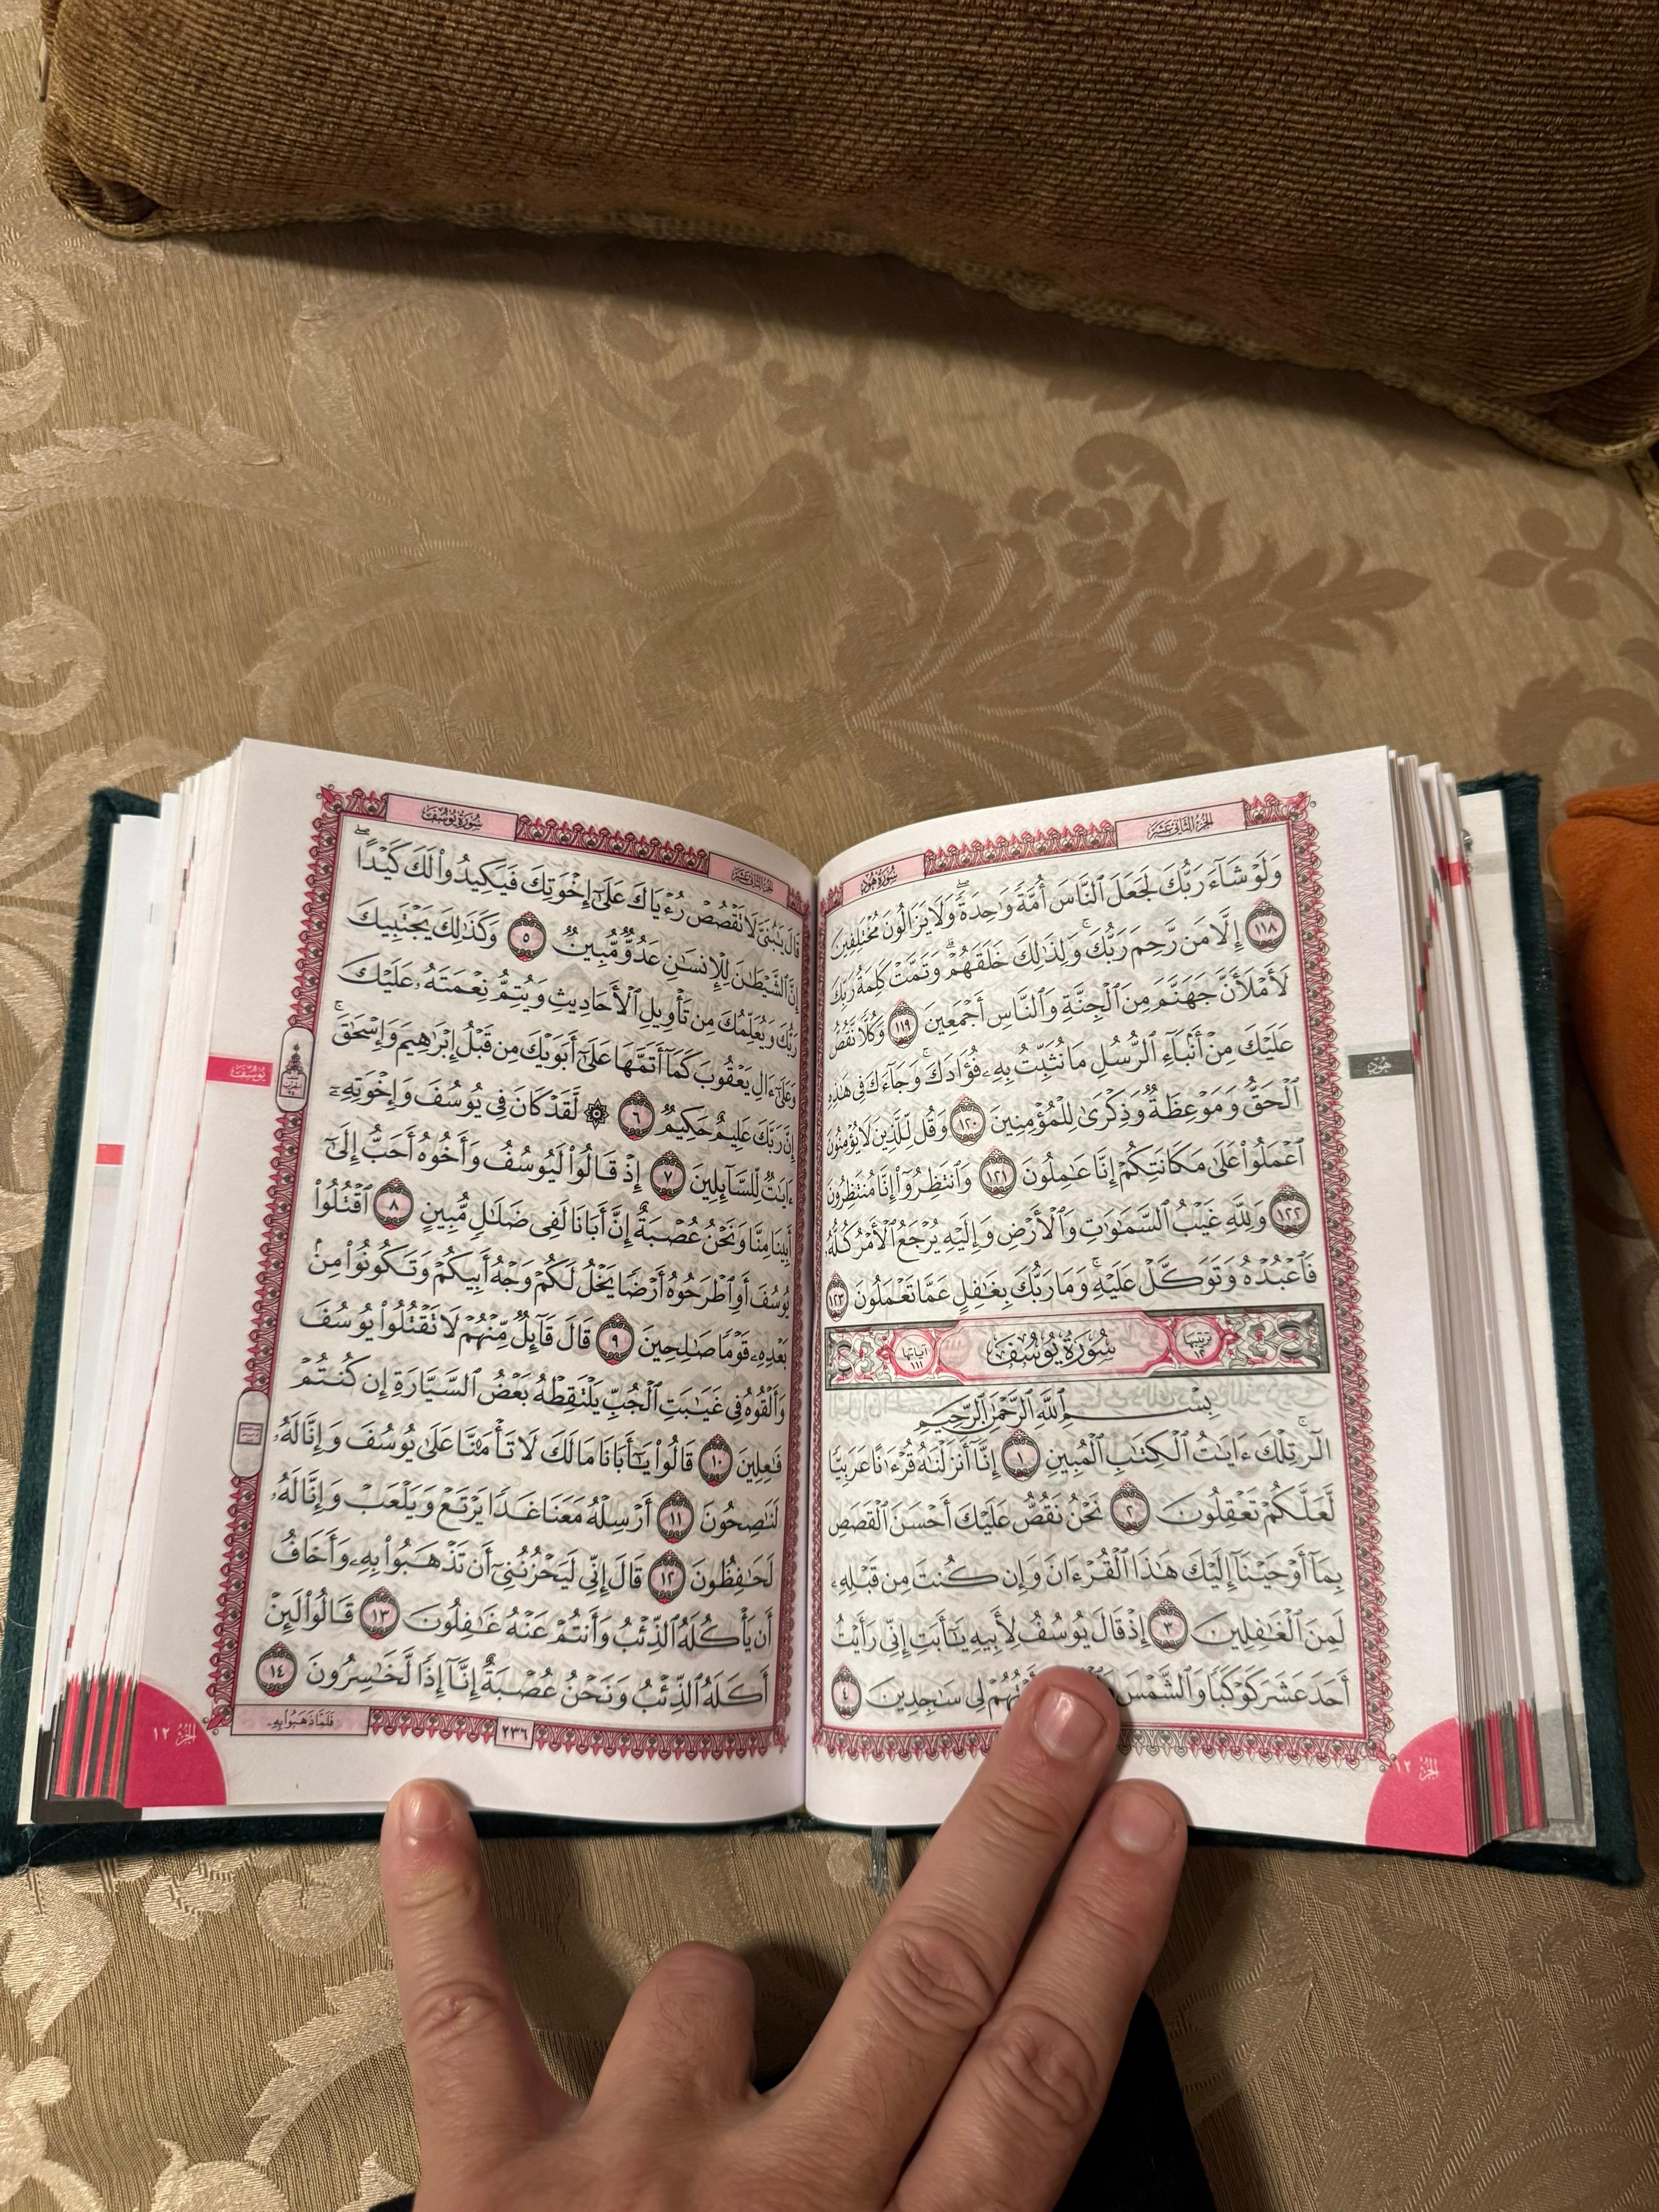 الجزء الثاني عشر
سورة هود
وَلَوْ شَآءَ رَبُّكَ لَجَعَلَ ٱلنَّاسَ أُمَّةً وَٰحِدَةً ۖ وَلَا يَزَالُونَ مُخْتَلِفِينَ
١١٨ إِلَّا مَن رَّحِمَ رَبُّكَ ۚ وَلِذَٰلِكَ خَلَقَهُمْ ۗ وَتَمَّتْ كَلِمَةُ رَبِّكَ
لَأَمْلَأَنَّ جَهَنَّمَ مِنَ ٱلْجِنَّةِ وَٱلنَّاسِ أَجْمَعِينَ ١١٩ وَكُلًّا نَّقُصُّ
عَلَيْكَ مِنْ أَنۢبَآءِ ٱلرُّسُلِ مَا نُثَبِّتُ بِهِۦ فُؤَادَكَ ۚ وَجَآءَكَ فِى هَٰذِهِ
ٱلْحَقُّ وَمَوْعِظَةٌ وَذِكْرَىٰ لِلْمُؤْمِنِينَ ١٢٠ وَقُل لِّلَّذِينَ لَا يُؤْمِنُونَ
ٱعْمَلُوا۟ عَلَىٰ مَكَانَتِكُمْ إِنَّا عَٰمِلُونَ ١٢١ وَٱنتَظِرُوٓا۟ إِنَّا مُنتَظِرُونَ
١٢٢ وَلِلَّهِ غَيْبُ ٱلسَّمَٰوَٰتِ وَٱلْأَرْضِ وَإِلَيْهِ يُرْجَعُ ٱلْأَمْرُ كُلُّهُۥ
فَٱعْبُدْهُ وَتَوَكَّلْ عَلَيْهِ ۚ وَمَا رَبُّكَ بِغَٰفِلٍ عَمَّا تَعْمَلُونَ ١٢٣
ترتيبها ١٢ سورة يوسف آياتها ١١١
بِسْمِ ٱللَّهِ ٱلرَّحْمَٰنِ ٱلرَّحِيمِ
الٓر ۚ تِلْكَ ءَايَٰتُ ٱلْكِتَٰبِ ٱلْمُبِينِ ١ إِنَّآ أَنزَلْنَٰهُ قُرْءَٰنًا عَرَبِيًّا
لَّعَلَّكُمْ تَعْقِلُونَ ٢ نَحْنُ نَقُصُّ عَلَيْكَ أَحْسَنَ ٱلْقَصَصِ
بِمَآ أَوْحَيْنَآ إِلَيْكَ هَٰذَا ٱلْقُرْءَانَ وَإِن كُنتَ مِن قَبْلِهِۦ
لَمِنَ ٱلْغَٰفِلِينَ ٣ إِذْ قَالَ يُوسُفُ لِأَبِيهِ يَٰٓأَبَتِ إِنِّى رَأَيْتُ
أَحَدَ عَشَرَ كَوْكَبًا وَٱلشَّمْسَ لِى سَٰجِدِينَ ٤
هود
الجزء ١٢
الجزء الثاني عشر
سورة يوسف
قَالَ يَٰبُنَىَّ لَا تَقْصُصْ رُءْيَاكَ عَلَىٰٓ إِخْوَتِكَ فَيَكِيدُوا۟ لَكَ كَيْدًا ۖ
إِنَّ ٱلشَّيْطَٰنَ لِلْإِنسَٰنِ عَدُوٌّ مُّبِينٌ ٥ وَكَذَٰلِكَ يَجْتَبِيكَ
رَبُّكَ وَيُعَلِّمُكَ مِن تَأْوِيلِ ٱلْأَحَادِيثِ وَيُتِمُّ نِعْمَتَهُۥ عَلَيْكَ
وَعَلَىٰٓ ءَالِ يَعْقُوبَ كَمَآ أَتَمَّهَا عَلَىٰٓ أَبَوَيْكَ مِن قَبْلُ إِبْرَٰهِيمَ وَإِسْحَٰقَ ۚ
إِنَّ رَبَّكَ عَلِيمٌ حَكِيمٌ ٦ ۞ لَّقَدْ كَانَ فِى يُوسُفَ وَإِخْوَتِهِۦٓ
ءَايَٰتٌ لِّلسَّآئِلِينَ ٧ إِذْ قَالُوا۟ لَيُوسُفُ وَأَخُوهُ أَحَبُّ إِلَىٰٓ
أَبِينَا مِنَّا وَنَحْنُ عُصْبَةٌ إِنَّ أَبَانَا لَفِى ضَلَٰلٍ مُّبِينٍ ٨ ٱقْتُلُوا۟
يُوسُفَ أَوِ ٱطْرَحُوهُ أَرْضًا يَخْلُ لَكُمْ وَجْهُ أَبِيكُمْ وَتَكُونُوا۟ مِنۢ
بَعْدِهِۦ قَوْمًا صَٰلِحِينَ ٩ قَالَ قَآئِلٌ مِّنْهُمْ لَا تَقْتُلُوا۟ يُوسُفَ
وَأَلْقُوهُ فِى غَيَٰبَتِ ٱلْجُبِّ يَلْتَقِطْهُ بَعْضُ ٱلسَّيَّارَةِ إِن كُنتُمْ
فَٰعِلِينَ ١٠ قَالُوا۟ يَٰٓأَبَانَا مَا لَكَ لَا تَأْمَ۫نَّا عَلَىٰ يُوسُفَ وَإِنَّا لَهُۥ
لَنَٰصِحُونَ ١١ أَرْسِلْهُ مَعَنَا غَدًا يَرْتَعْ وَيَلْعَبْ وَإِنَّا لَهُۥ
لَحَٰفِظُونَ ١٢ قَالَ إِنِّى لَيَحْزُنُنِىٓ أَن تَذْهَبُوا۟ بِهِۦ وَأَخَافُ
أَن يَأْكُلَهُ ٱلذِّئْبُ وَأَنتُمْ عَنْهُ غَٰفِلُونَ ١٣ قَالُوا۟ لَئِنْ
أَكَلَهُ ٱلذِّئْبُ وَنَحْنُ عُصْبَةٌ إِنَّآ إِذًا لَّخَٰسِرُونَ ١٤
٢٣٦
فَلَمَّا ذَهَبُوا۟ بِهِۦ
يوسف
الجزء ١٢